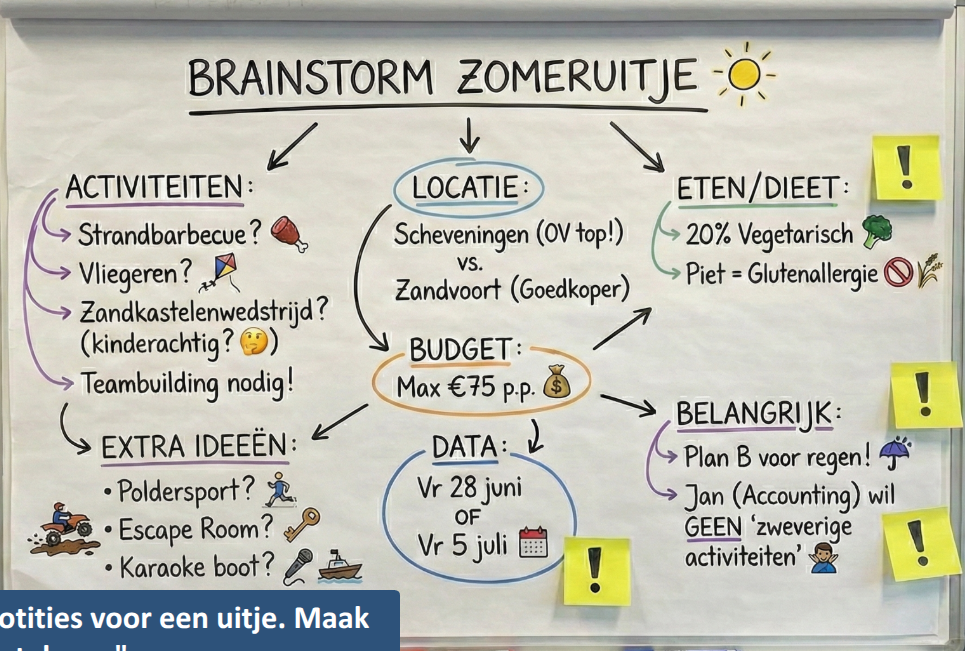 BRAINSTORM ZOMERUITJE
ACTIVITEITEN:
Strandbarbecue?
Vliegeren?
Zandkastelenwedstrijd?
(kinderachtig? )
Teambuilding nodig!
EXTRA IDEEËN:
• Poldersport?
• Escape Room?
• Karaoke boot?
LOCATIE:
Scheveningen (OV top!)
vs.
Zandvoort (Goedkoper)
BUDGET:
Max €75 p.p.
$
DATA:
Vr 28 juni
OF
Vr 5 juli
!
ETEN/DIEET:
!
20% Vegetarisch
Piet = Glutenallergie
!
BELANGRIJK:
Plan B voor regen!
Jan (Accounting) wil
GEEN 'zweverige
activiteiten'
!
otities voor een uitje. Maak